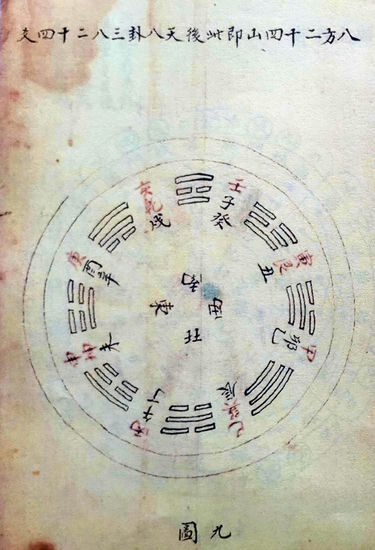 八方二十四山即此後天八卦三八二十四爻
壬子癸
丑艮寅
甲卯乙
辰巽巳
丙午丁
未坤申
庚酉辛
戌乾亥
南
東
西
北
九圖